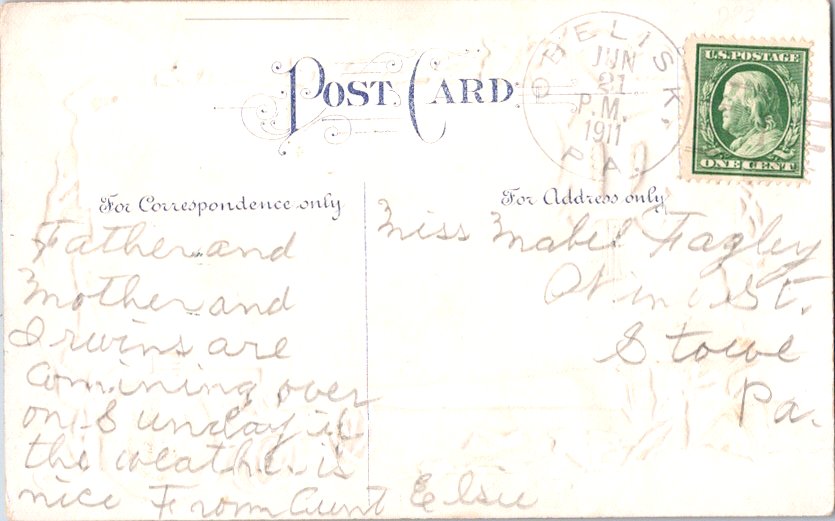 POST CARD
OBELISK,
JUN
21
P.M.
1911
PA.
U.S. POSTAGE
ONE CENT
For Correspondence only
Father and
Mother and
Irwins are
comining over
on Sunday if
the weather is
nice From Aunt Elsie
For Address only
Miss Mabel Fagley
St.
Stowe
Pa.